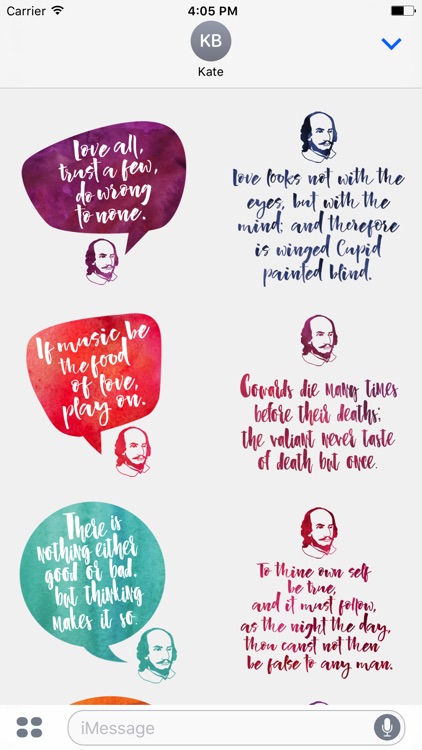 Carrier 4:05 PM
KB
Kate
Love all,
trust a few,
do wrong
to none.
Love looks not with the
eyes, but with the
mind; and therefore
is winged Cupid
painted blind.
If music be
the food
of love,
play on.
Cowards die many times
before their deaths;
the valiant never taste
of death but once.
There is
nothing either
good or bad,
but thinking
makes it so.
To thine own self
be true,
and it must follow,
as the night the day,
thou canst not then
be false to any man.
iMessage